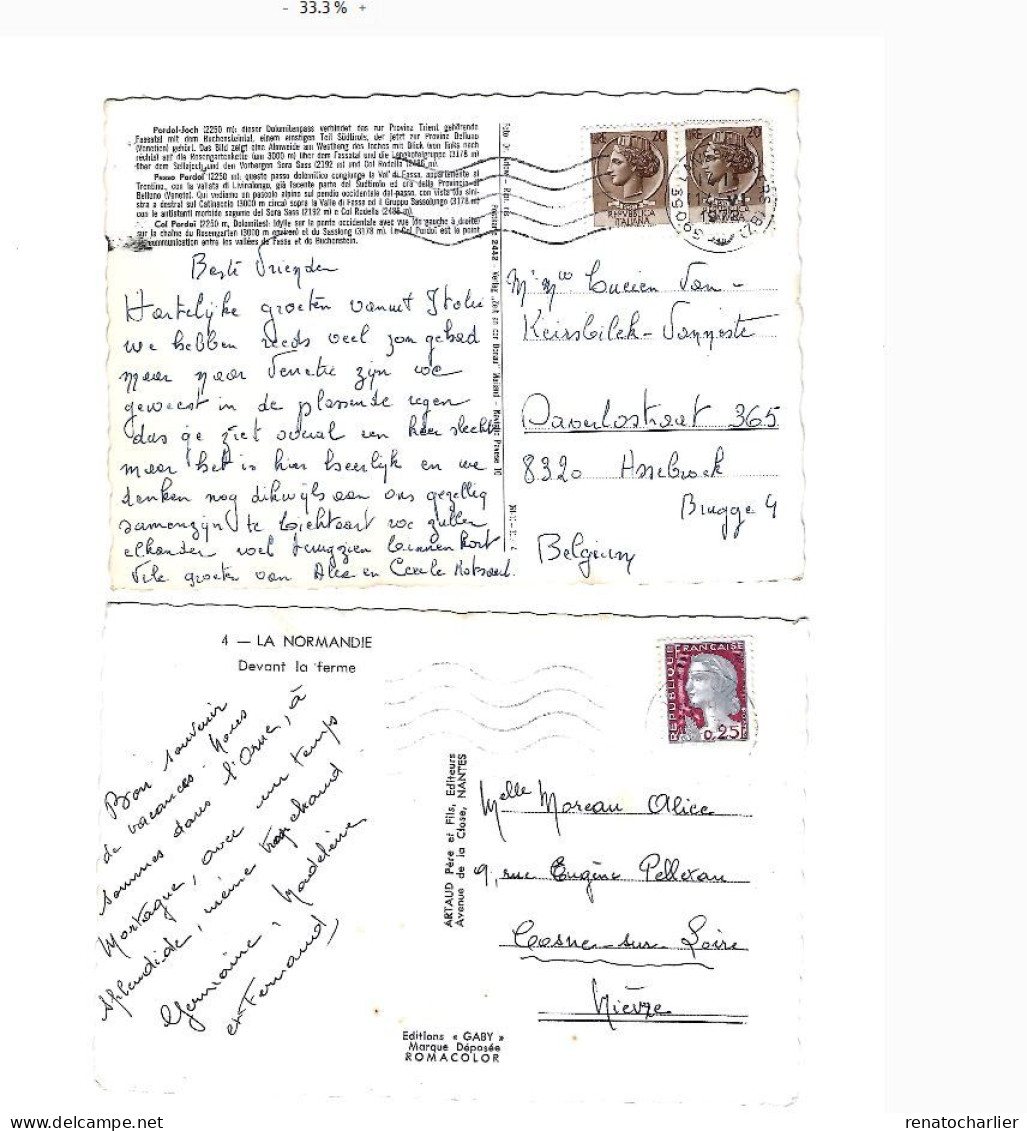 - 33.3 % +
Pordoi-Joch (2250 m): dieser Dolomitenpass verbindet das zur Provinz Trient gehörende
Fassatal mit dem Buchensteintal, einem einstigen Teil Südtirols, der jetzt zur Provinz Belluno
(Venetien) gehört. Das Bild zeigt eine Almweide am Westhang des Joches mit Blick (von links nach
rechts) auf die Rosengartenkette (um 3000 m) über dem Fassatal und die Langkofelgruppe (3178 m)
über dem Sellajoch und den Vorbergen Sora Sass (2192 m) und Col Rodella (2485 m).
Passo Pordoi (2250 m): questo passo dolomitico congiunge la Val di Fassa, appartenente al
Trentino, con la vallata di Livinalongo, già facente parte del Sudtirolo ed ora della Provincia di
Belluno (Veneto). Qui vediamo un pascolo alpino sul pendio occidentale del passo, con vista (da sini-
stra a destra) sul Catinaccio (3000 m circa) sopra la Valle di Fassa ed il Gruppo Sassolungo (3178 m)
con le antistanti morbido sagome del Sora Sass (2192 m) e Col Rodella (2485 m).
Col Pordoi (2250 m, Dolomites): Idylle sur la pente occidentale avec vue (de gauche à droite)
sur la chaîne du Rosengarten (3000 m environ) et du Sasslong (3178 m). Le Col Pordoi est le point
de communication entre les vallées de Fassa et de Buchenstein.
LIRE 20
LIRE 20
REPVBBLICA
ITALIANA
1972
Beste Vrienden
Hartelijke groeten vanuit Italie
we hebben reeds veel zon gehad
maar naar Venetie zijn we
geweest in de plassende regen
dus ge ziet overal een keer slecht
maar het is hier heerlijk en we
denken nog dikwijls aan ons gezellig
samenzijn te Lichtaart we zullen
elkander wel terugzien binnen kort
Vele groeten van
Mr Mme Lucien Van -
Keirsbilck - Vanneste
Daverlostraat 365
8320 Assebroek
Brugge 4
Belgium
4 — LA NORMANDIE
Devant la ferme
Bon souvenir
de vacances. Nous
sommes dans l'Orne, à
Mortagne, avec un temps
splendide, même trop chaud
Germaine, Madeleine
et Fernand,
ARTAUD Père et Fils, Editeurs
Avenue de la Close, NANTES
REPUBLIQUE FRANÇAISE
0,25
Melle Moreau Alice
9, rue Eugène Pelletan
Cosne-sur-Loire
Nièvre
Editions « GABY »
Marque Déposée
ROMACOLOR
renatocharlier